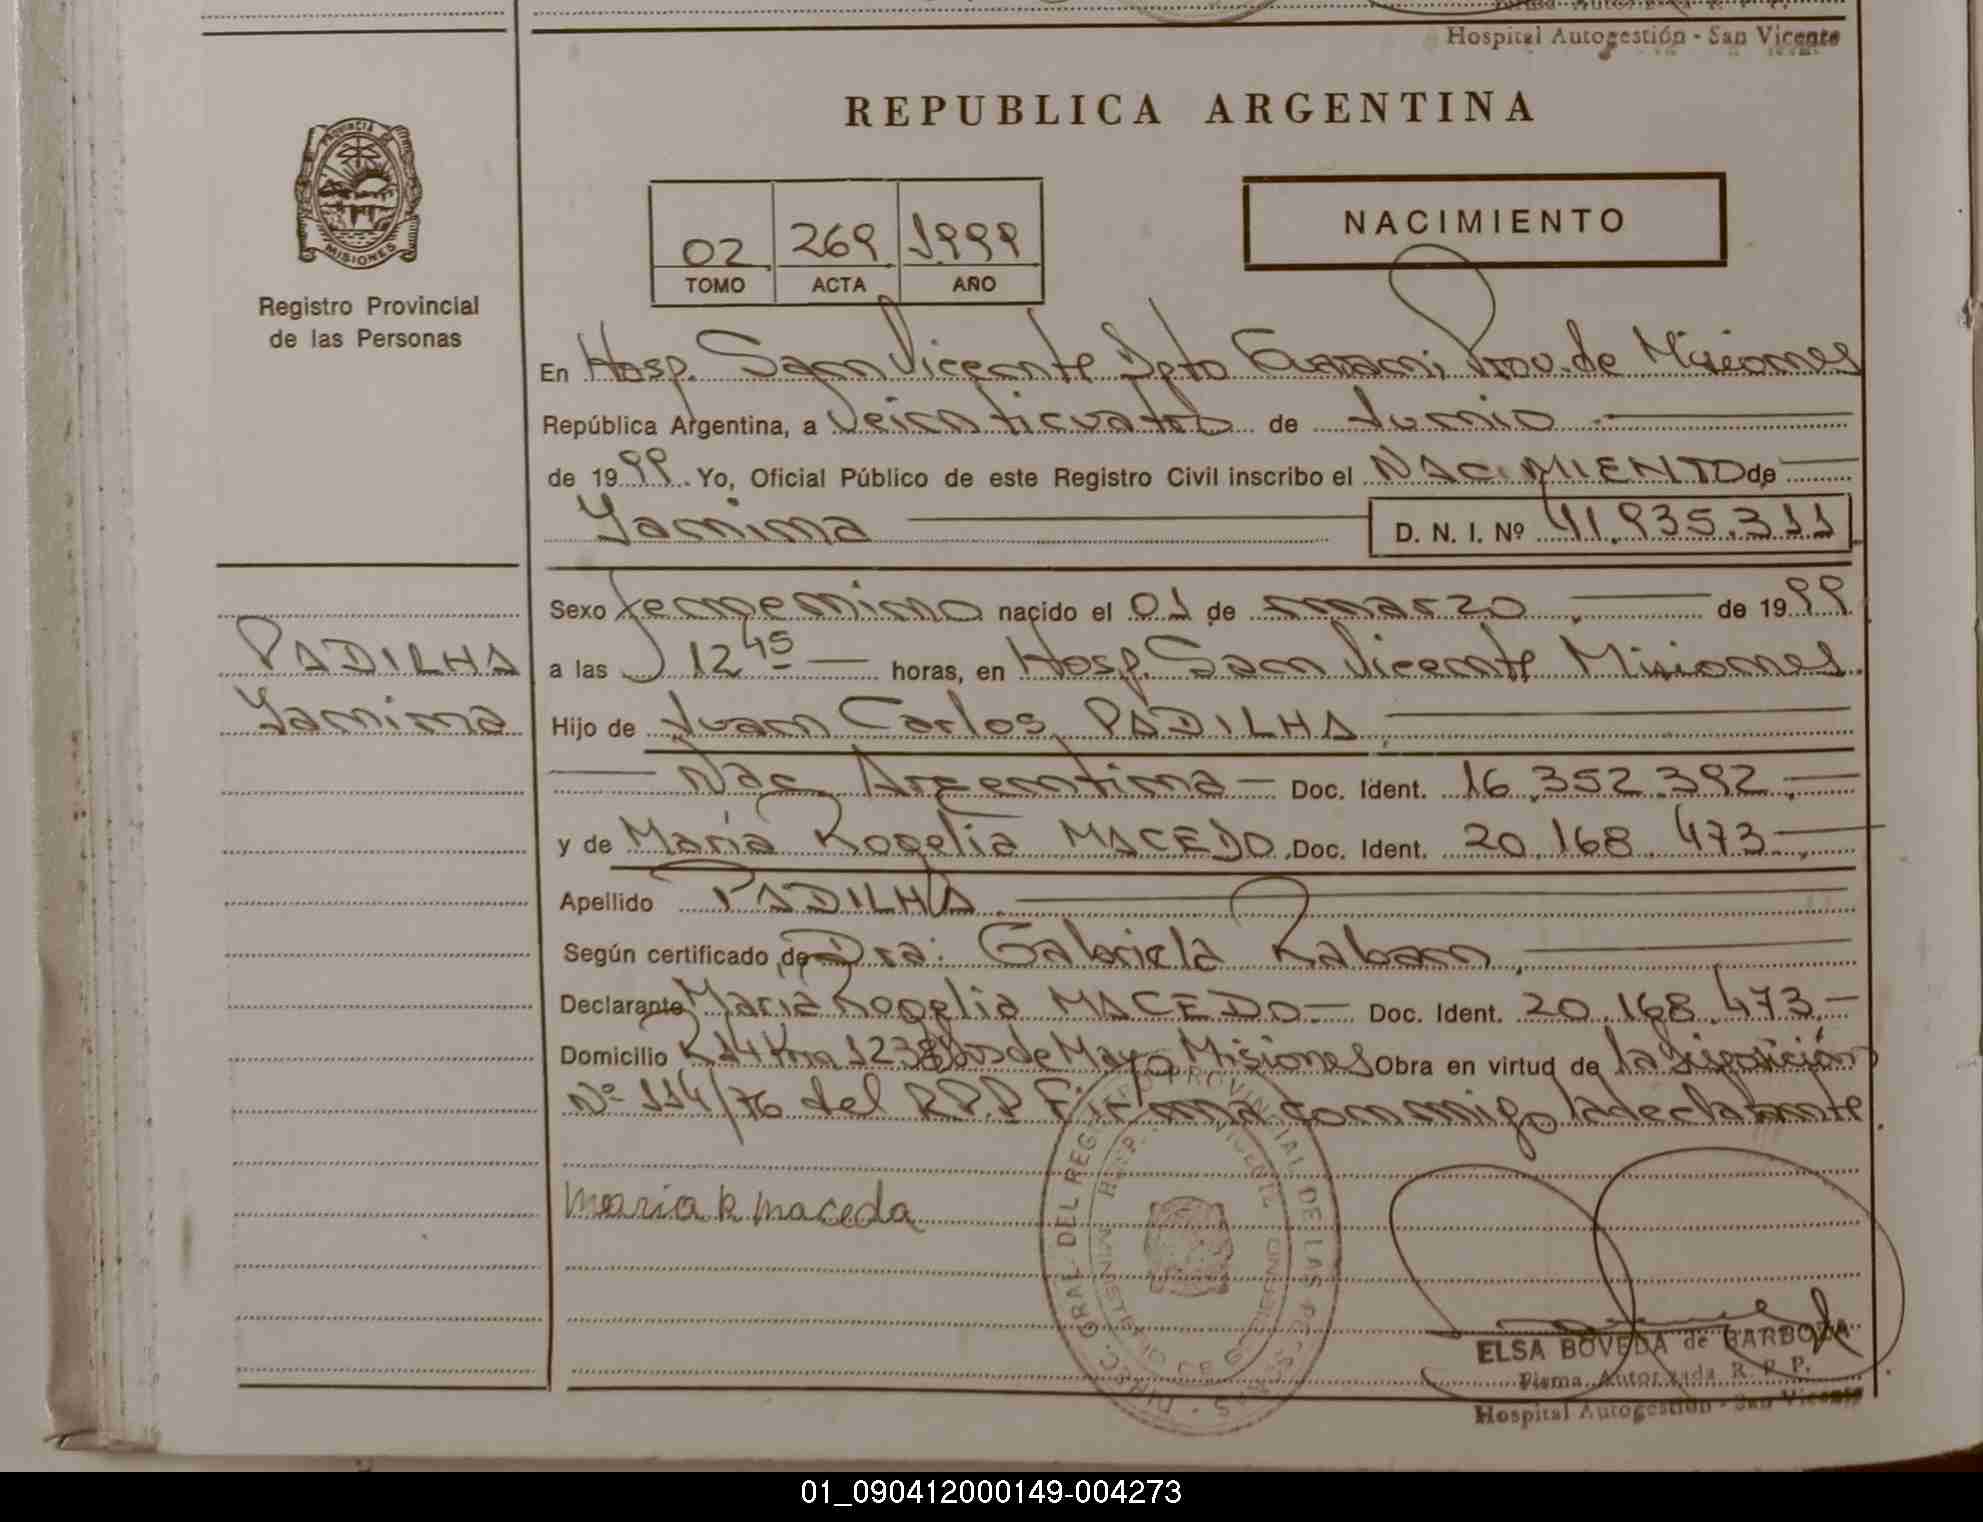 Hospital Autogestión - San Vicente
REPUBLICA ARGENTINA
PROVINCIA
MISIONES
Registro Provincial
de las Personas
02 269 1999
TOMO ACTA AÑO
NACIMIENTO
En Hosp. San Vicente Dpto Guarani, Prov. de Misiones
República Argentina, a veinticuatro de Junio
de 1999. Yo, Oficial Público de este Registro Civil inscribo el NACIMIENTO de
Yamima D. N. I. Nº 41.935.311
Sexo femenino nacido el 01 de marzo de 1999
PADILHA
Yamima
a las 12 45 horas, en Hosp. San Vicente Misiones.
Hijo de Juan Carlos PADILHA
Nac. Argentina Doc. Ident. 16.352.392
y de María Rogelia MACEDO Doc. Ident. 20.168.473
Apellido PADILHA
Según certificado de Dra: Gabriela Raban
Declarante María Rogelia MACEDO Doc. Ident. 20.168.473
Domicilio R 14 Km 1238 de Mayo Misiones Obra en virtud de la Disposición
Nº 114/76 del R.P.P Firma conmigo la declarante
maria R maceda
DIREC. GRAL. DEL REGISTRO PROVINCIAL DE LAS PERSONAS
MINISTERIO DE GOBIERNO
HOSP. VICENTE
ELSA BOVEDA de BARBOZA
Firma Autorizada R. P. P.
Hospital Autogestión - San Vicente
01_090412000149-004273